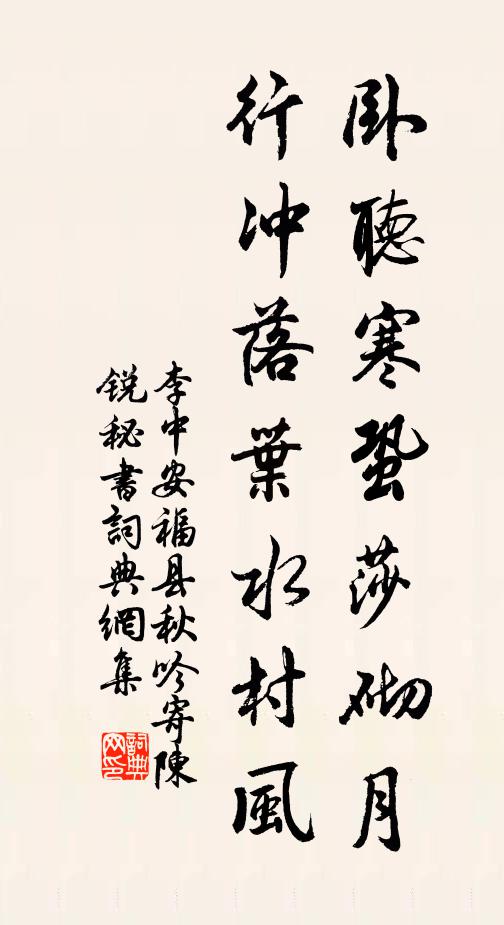 卧聽寒蛩莎砌月
行沖落葉水村風
李中安福县秋吟寄陳
锐秘書詞典網集
詞典网印